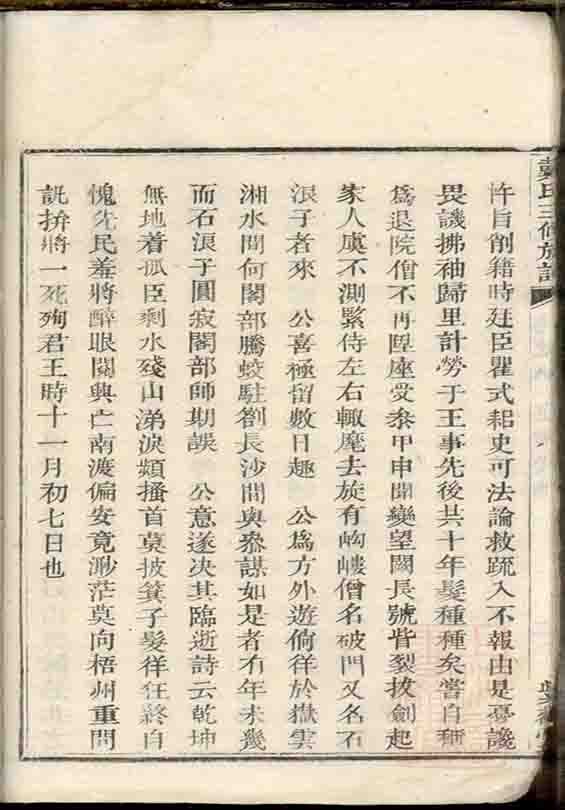 戴氏三修族譜
忤旨削籍時廷臣瞿式耜史可法論救疏入不報由是憂讒
畏譏拂袖歸里計勞于王事先後共十年髮種種矣嘗自稱
爲退院僧不再陞座受叅甲申聞變望闕長號眥裂拔劍起
家人虞不測緊侍左右輒麾去旋有岣嶁僧名破門又名石
浪子者來 公喜極留數日趣 公爲方外遊倘徉於嶽雲
湘水間何閣部騰蛟駐劄長沙間與叅謀如是者有年未幾
而石浪子圓寂閣部師期誤 公意遂决其臨逝詩云乾坤
無地着孤臣剩水殘山涕淚頻搔首莫披箕子髮徉狂終自
愧先民羞將醉眼閱興亡南渡偏安竟渺茫莫向梧州重問
訊拚將一死殉君王時十一月初七日也